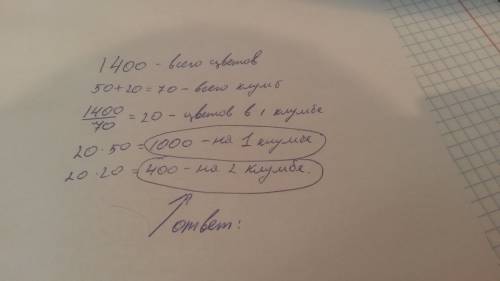 1400 - всего цветов
50+20=70 - всего клумб
1400/70 = 20 - цветов в 1 клумбе
20·50=1000 - на 1 клумбе
20·20=400 - на 2 клумбе.
ответ: